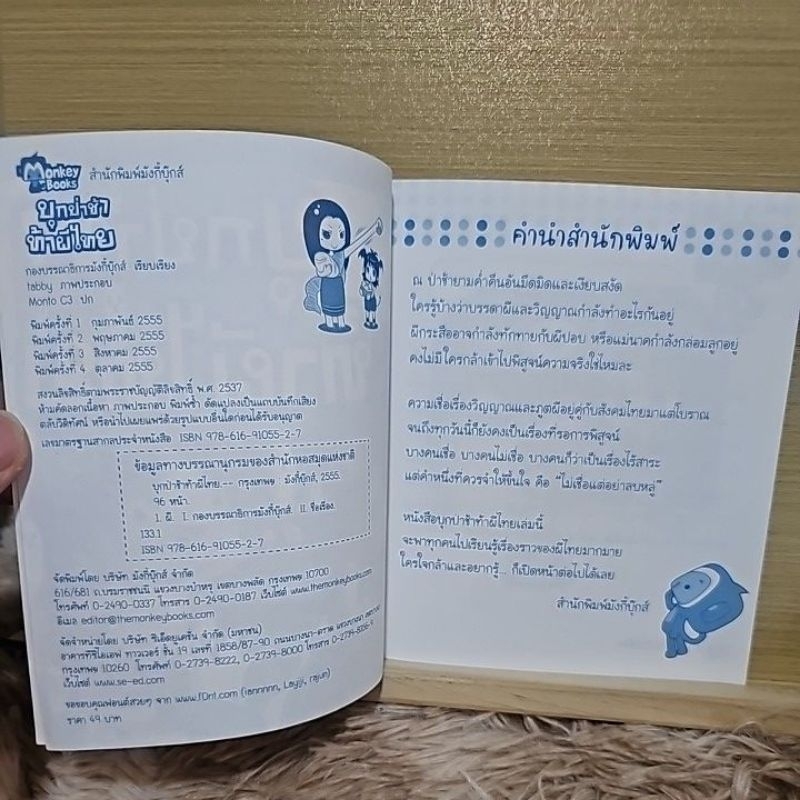 Monkey Books
สำนักพิมพ์มังกี้บุ๊กส์
บุกป่าช้า
ท้าผีไทย
กองบรรณาธิการมังกี้บุ๊กส์ เรียบเรียง
tabby ภาพประกอบ
Monto C3 ปก
พิมพ์ครั้งที่ 1 กุมภาพันธ์ 2555
พิมพ์ครั้งที่ 2 พฤษภาคม 2555
พิมพ์ครั้งที่ 3 สิงหาคม 2555
พิมพ์ครั้งที่ 4 ตุลาคม 2555
สงวนลิขสิทธิ์ตามพระราชบัญญัติลิขสิทธิ์ พ.ศ. 2537
ห้ามคัดลอกเนื้อหา ภาพประกอบ พิมพ์ซ้ำ ดัดแปลงเป็นแถบบันทึกเสียง
ตลับวิดีทัศน์ หรือนำไปเผยแพร่ด้วยรูปแบบอื่นใดก่อนได้รับอนุญาต
เลขมาตรฐานสากลประจำหนังสือ ISBN 978-616-91055-2-7
ข้อมูลทางบรรณานุกรมของสำนักหอสมุดแห่งชาติ
บุกป่าช้าท้าผีไทย.-- กรุงเทพฯ : มังกี้บุ๊กส์, 2555.
96 หน้า.
1. ผี. I. กองบรรณาธิการมังกี้บุ๊กส์. II. ชื่อเรื่อง.
133.1
ISBN 978-616-91055-2-7
จัดพิมพ์โดย บริษัท มังกี้บุ๊กส์ จำกัด
616/681 ถ.บรมราชชนนี แขวงบางบำหรุ เขตบางพลัด กรุงเทพฯ 10700
โทรศัพท์ 0-2490-0337 โทรสาร 0-2490-0187 เว็บไซต์ www.themonkeybooks.com
อีเมล editor@themonkeybooks.com
จัดจำหน่ายโดย บริษัท ซีเอ็ดยูเคชั่น จำกัด (มหาชน)
อาคารทีซีไอเอฟ ทาวเวอร์ ชั้น 19 เลขที่ 1858/87-90 ถนนบางนา-ตราด แขวงบางนา เขตบางนา
กรุงเทพฯ 10260 โทรศัพท์ 0-2739-8222, 0-2739-8000 โทรสาร
เว็บไซต์ www.se-ed.com
ขอขอบคุณฟอนต์สวยๆ จาก www.f0nt.com (iannnnn, Layiji, rajun)
ราคา 49 บาท
คำนำสำนักพิมพ์
ณ ป่าช้ายามค่ำคืนอันมืดมิดและเงียบสงัด
ใครรู้บ้างว่าบรรดาผีและวิญญาณกำลังทำอะไรกันอยู่
ผีกระสืออาจกำลังทักทายกับผีปอบ หรือแม่นาคกำลังกล่อมลูกอยู่
คงไม่มีใครกล้าเข้าไปพิสูจน์ความจริงใช่ไหมละ
ความเชื่อเรื่องวิญญาณและภูตผีอยู่คู่กับสังคมไทยมาแต่โบราณ
จนถึงทุกวันนี้ก็ยังคงเป็นเรื่องที่รอการพิสูจน์
บางคนเชื่อ บางคนไม่เชื่อ บางคนก็ว่าเป็นเรื่องไร้สาระ
แต่คำหนึ่งที่ควรจำให้ขึ้นใจ คือ "ไม่เชื่อแต่อย่าลบหลู่"
หนังสือบุกป่าช้าท้าผีไทยเล่มนี้
จะพาทุกคนไปเรียนรู้เรื่องราวของผีไทยมากมาย
ใครใจกล้าและอยากรู้... ก็เปิดหน้าต่อไปได้เลย
สำนักพิมพ์มังกี้บุ๊กส์